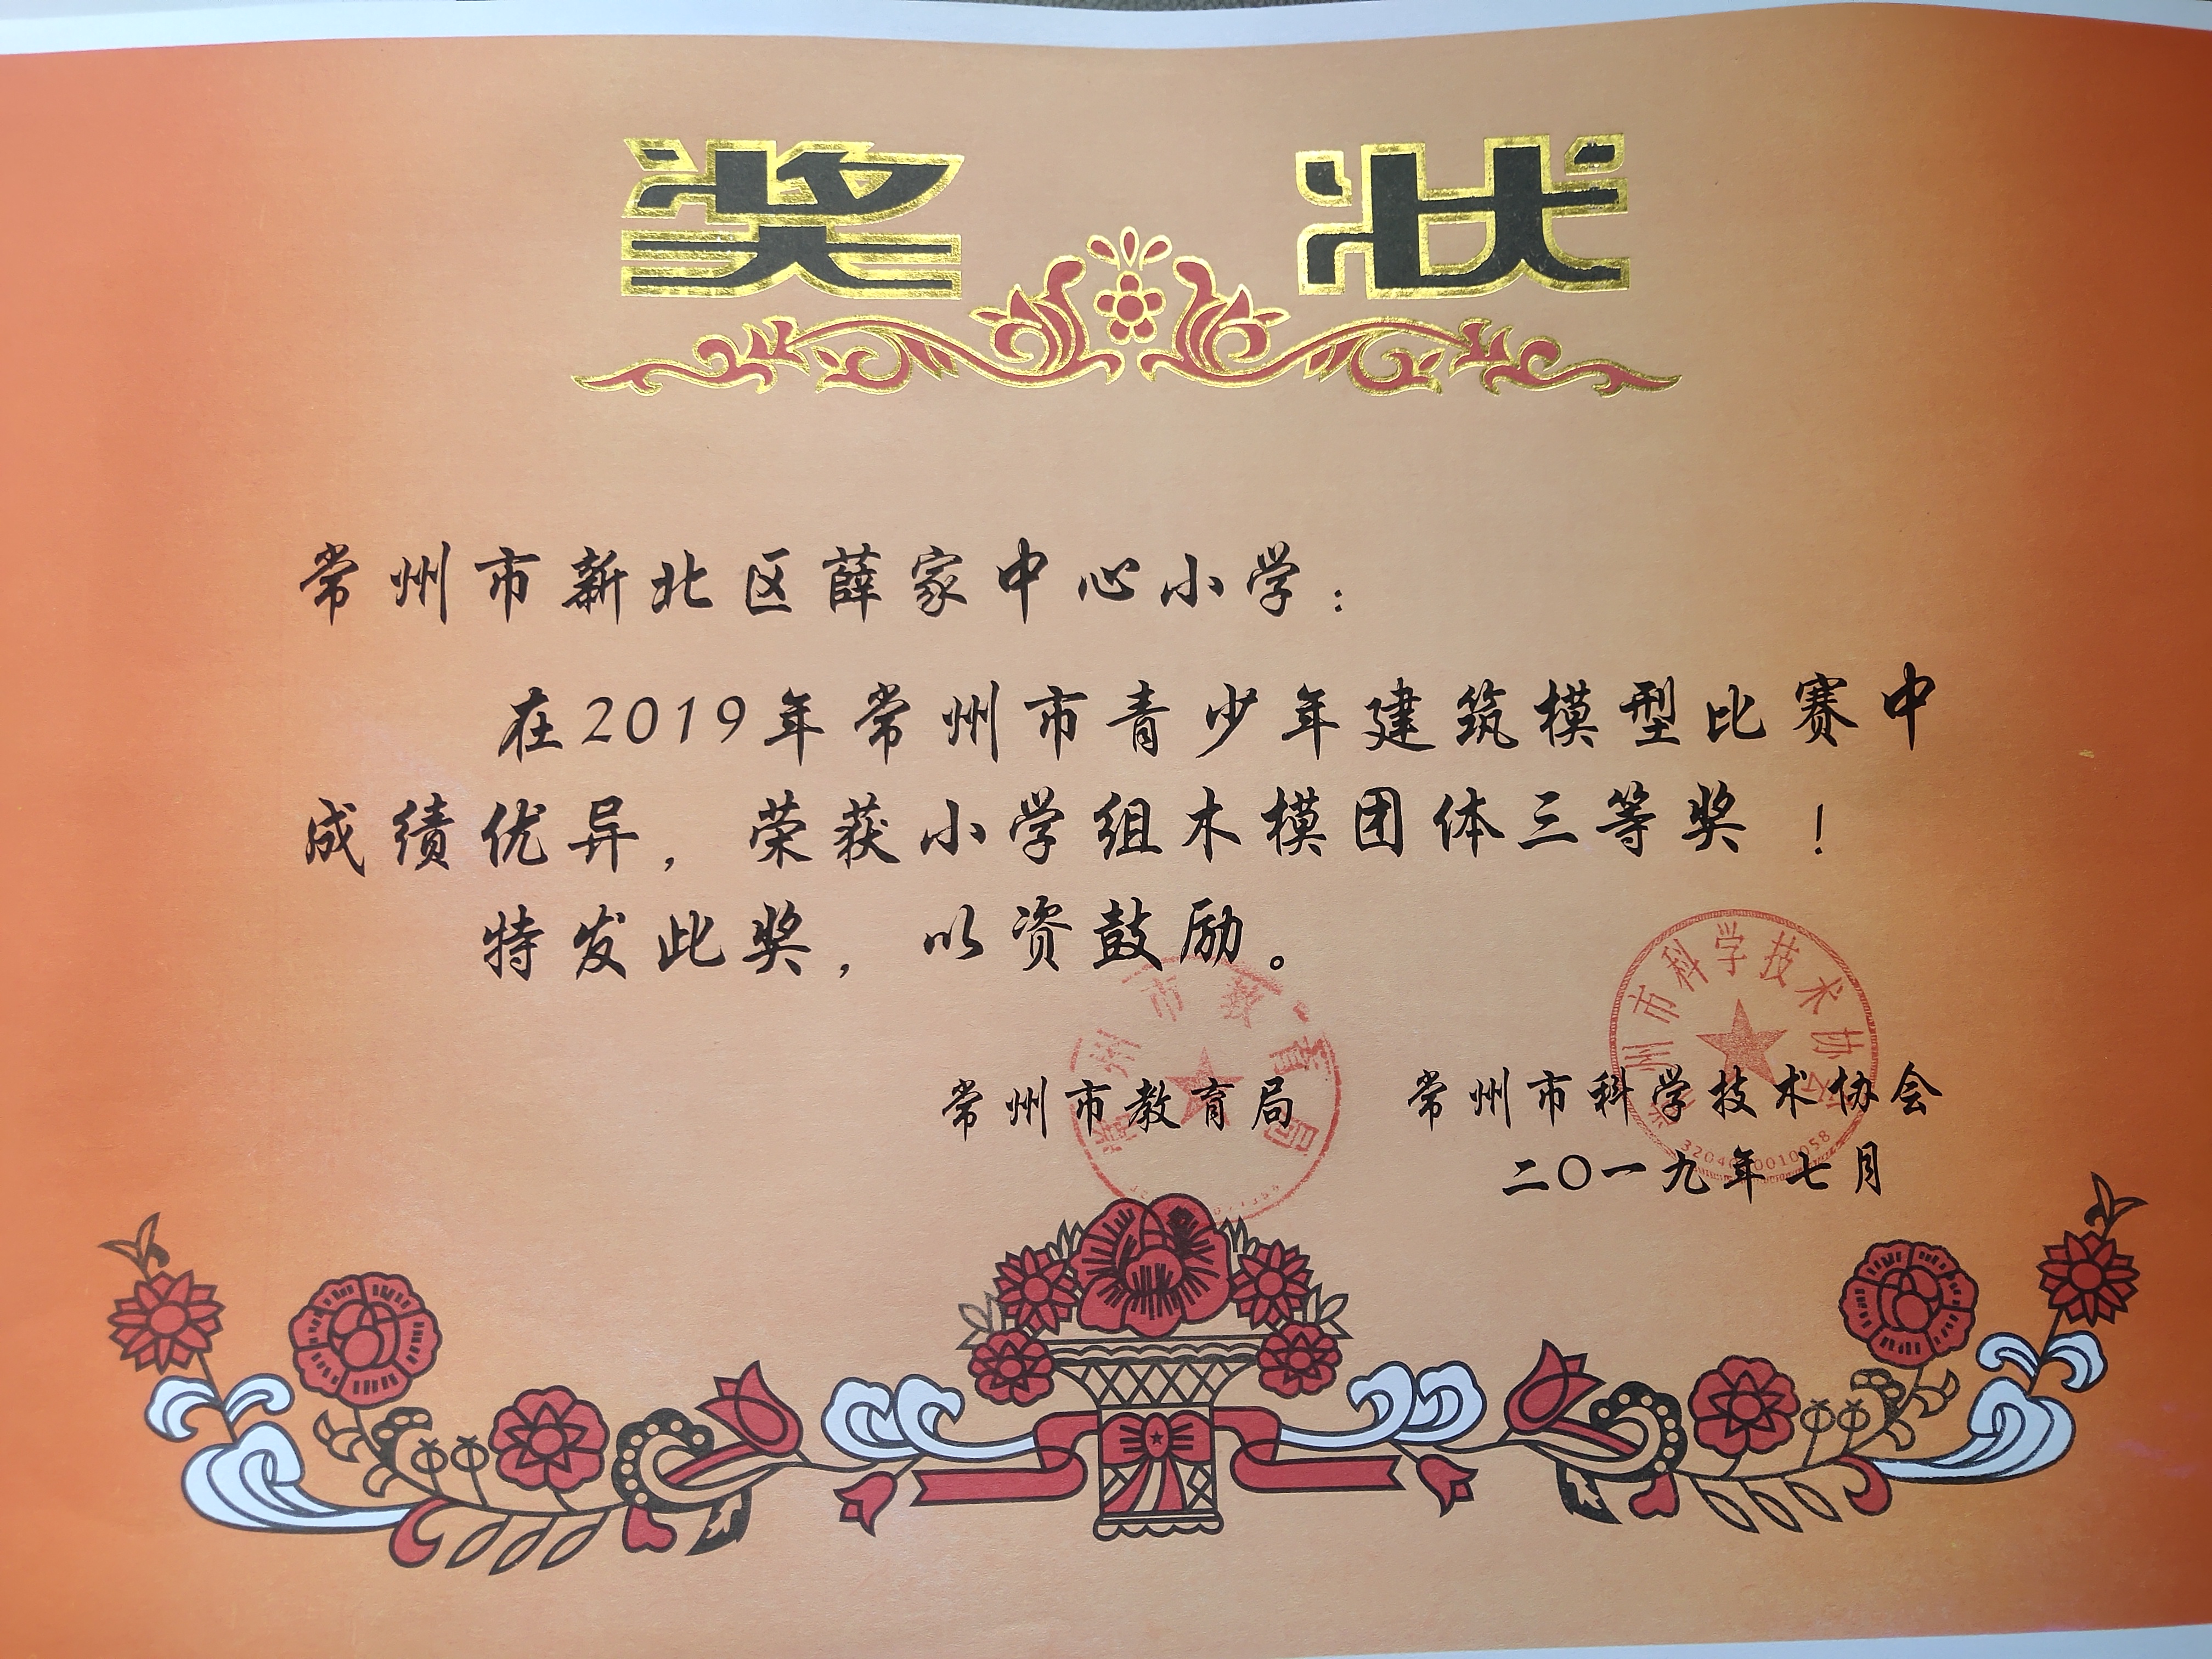 奖 状
常州市新北区薛家中心小学：
在2019年常州市青少年建筑模型比赛中
成绩优异，荣获小学组木模团体三等奖！
特发此奖，以资鼓励。
常州市教育局 常州市科学技术协会
二〇一九年七月
州市教育局
州市科学技术协会